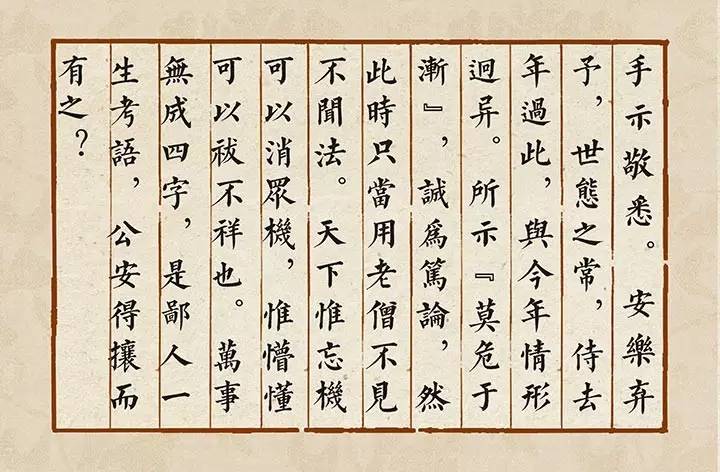 手示敬悉。安樂弃
予，世態之常，侍去
年過此，與今年情形
迥异。所示『莫危于
漸』，誠爲篤論，然
此時只當用老僧不見
不聞法。天下惟忘機
可以消眾機，惟懵懂
可以祓不祥也。萬事
無成四字，是鄙人一
生考語，公安得攘而
有之？